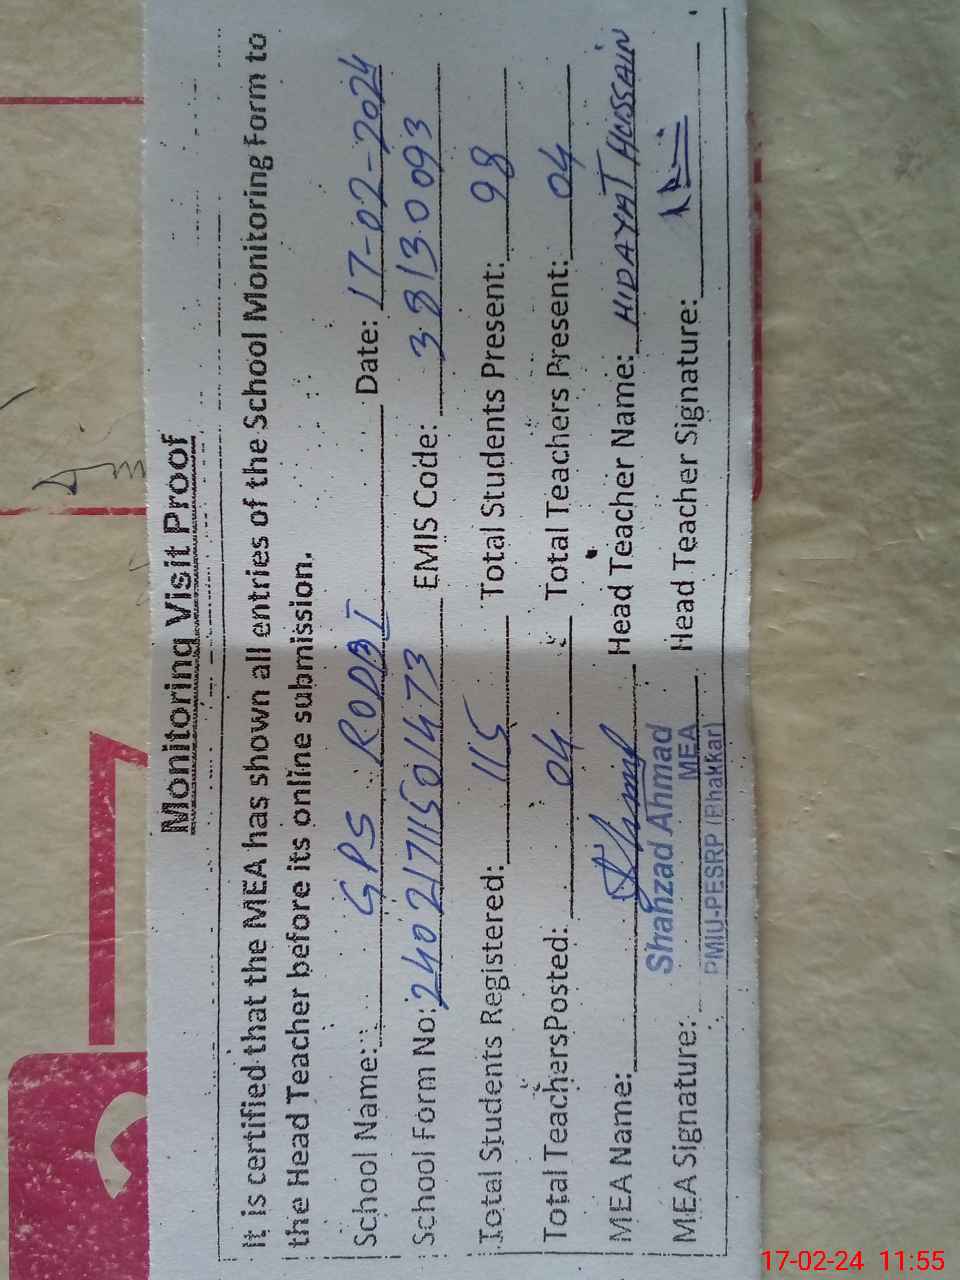 Monitoring Visit Proof
It is certified that the MEA has shown all entries of the School Monitoring Form to
the Head Teacher before its online submission.
School Name: GPS RODBI Date: 17-02-2024
School Form No: 24021711501473 EMIS Code: 38130093
Total Students Registered: 115 Total Students Present: 98
Total Teachers Posted: 04 Total Teachers Present: 04
MEA Name: Head Teacher Name: HIDAYAT HUSSAIN
Shahzad Ahmad
MEA
MEA Signature: Head Teacher Signature:
PMIU-PESRP (Bhakkar)
17-02-24 11:55